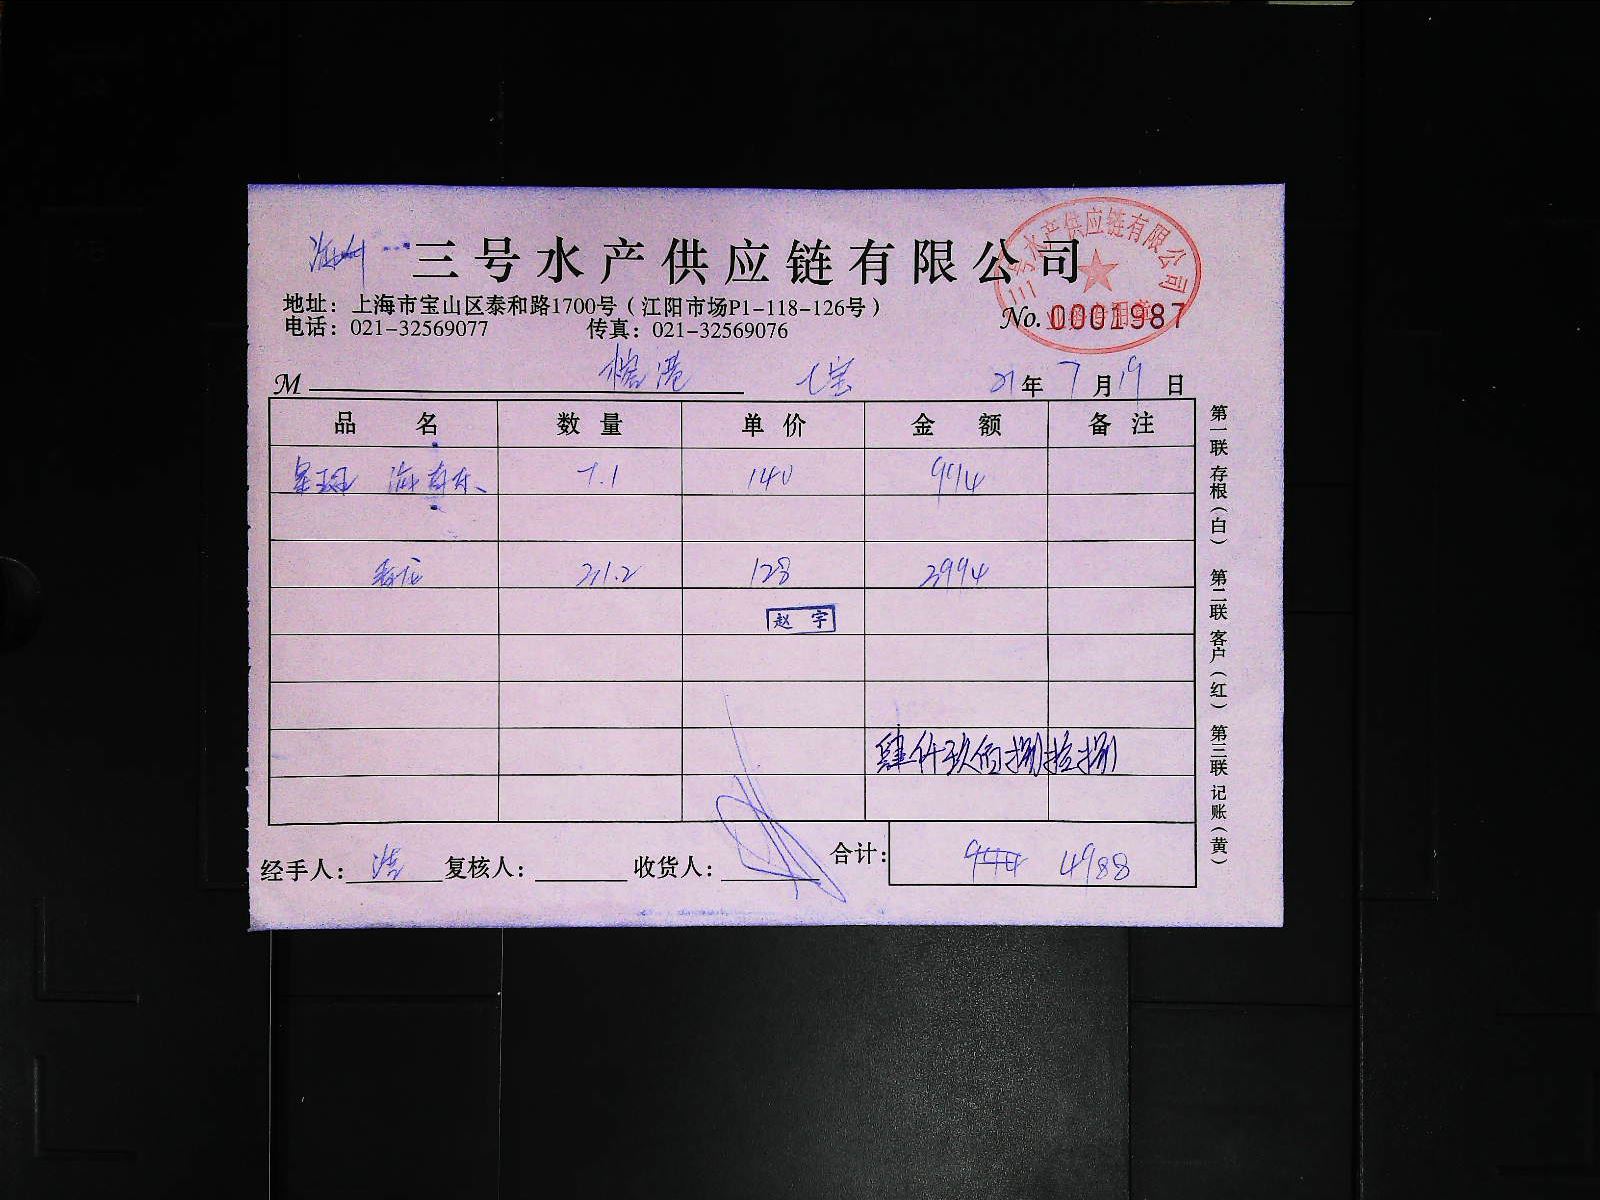 三号水产供应链有限公司
三号水产供应链有限公司
地址：上海市宝山区泰和路1700号（江阳市场P1-118-126号）
电话：021-32569077 传真：021-32569076
No. 0001987
M 七宝 21年7月19日
品名 数量 单价 金额 备注
7.1 140 994
31.2 128 3994
赵宇
肆仟玖佰捌拾捌
经手人：浩 复核人： 收货人： 合计： 994 4988
第一联 存根（白） 第二联 客户（红） 第三联 记账（黄）